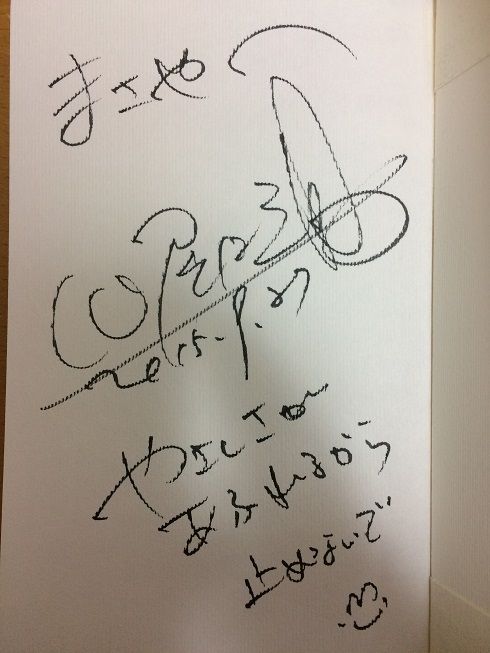 まさやへ
2015.9.27
やさしさが
あふれるから
止めないで